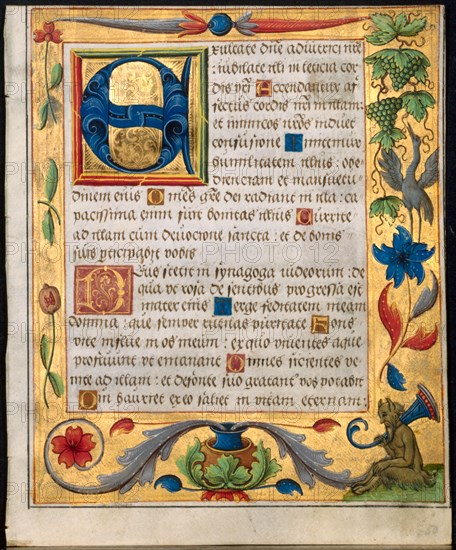 Exultate dne adiutrici nre:
iubilate illi in leticia cor
dis vri Accendantur af
fectus cordis vri in illam:
et inimicos vros induet
confusione Imitemur
humilitatem illius: obe
dientiam et mansuetu
dinem eius Omes gre dei radiant in illa: ca
pacissima enim fuit bonitas illius Currite
ad illam cum devocione sancta: et de bonis
suis participabit vobis
Deus stetit in synagoga iudeorum: de
qua ut rosa de sentibus progressa est
mater eius Terge feditatem meam
domina: que semper rutilas puritate Fons
vite influe in os meum: ex quo viventes aque
profluunt et emanant Omnes sicientes ve
nite ad illam: et de fonte suo gratant vos potabit
Qui hauret ex eo saliet in vitam eternam: